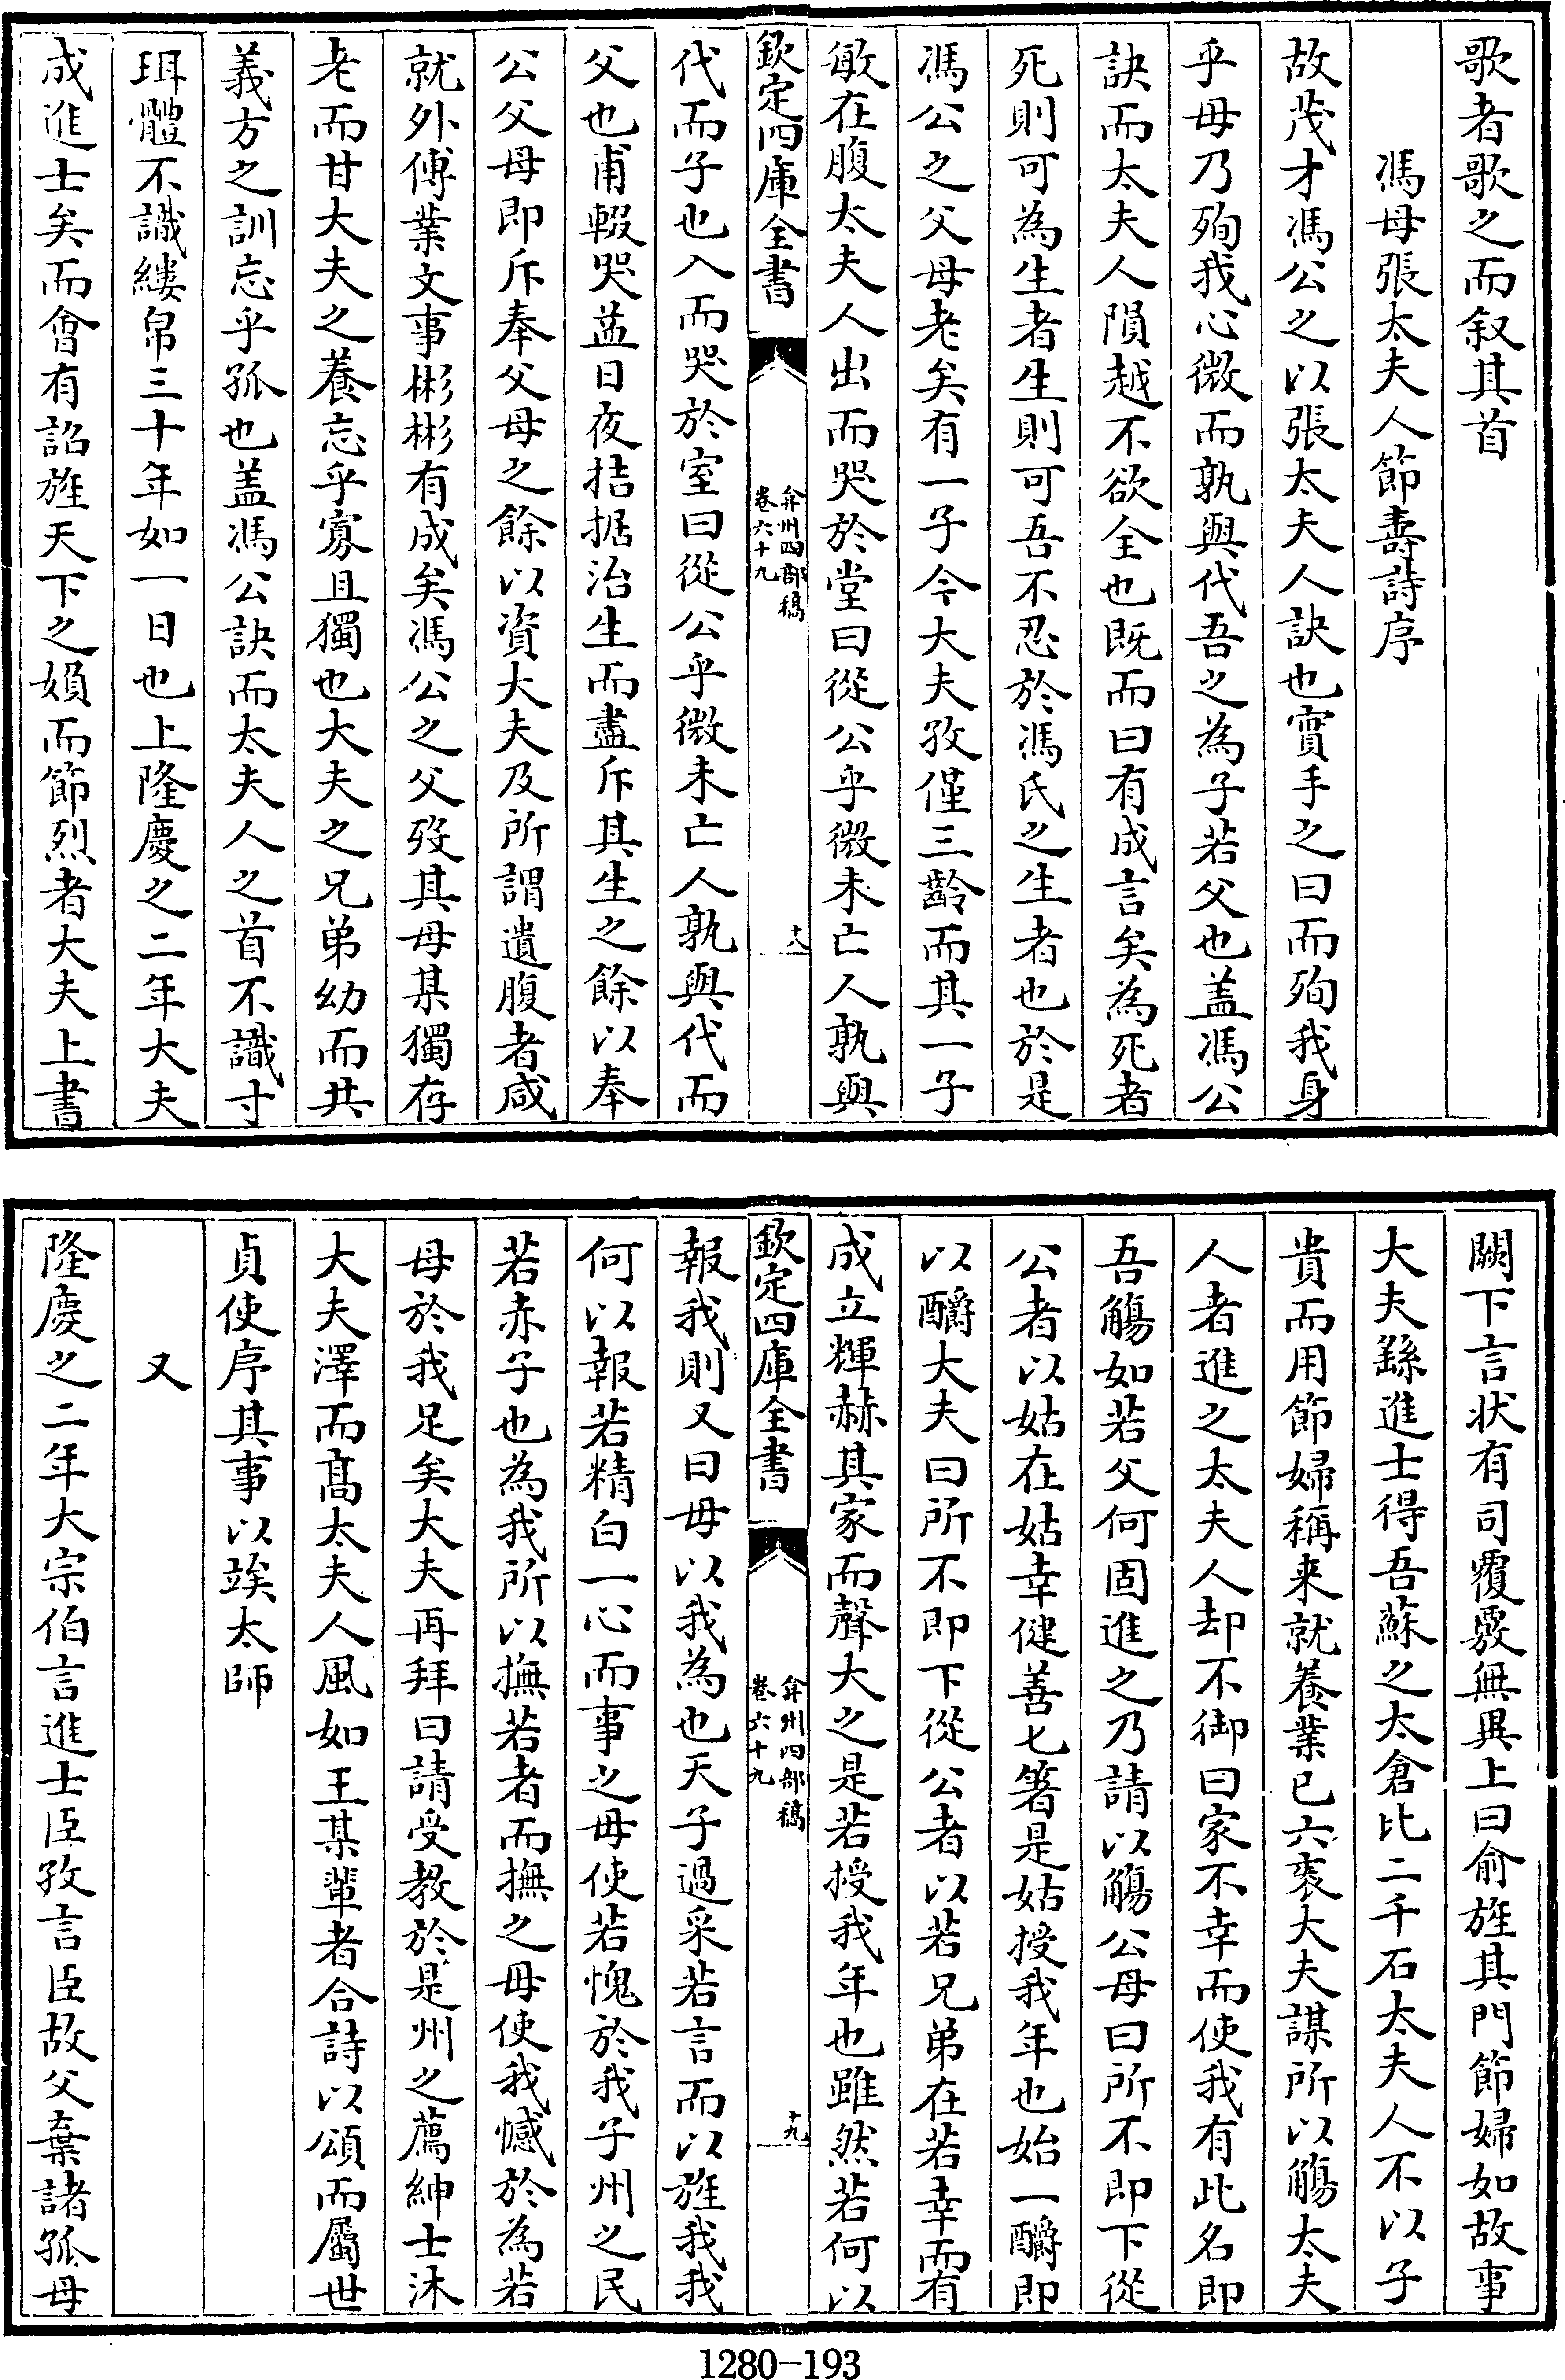 歌者歌之而叙其首
馮母張太夫人節壽詩序
故茂才馮公之以張太夫人訣也實手之曰而殉我身
乎毋乃殉我心微而孰與代吾之為子若父也盖馮公
訣而太夫人隕越不欲全也既而曰有成言矣為死者
死則可為生者生則可吾不忍於馮氏之生者也於是
馮公之父母老矣有一子今大夫孜僅三齡而其一子
敏在腹太夫人出而哭於堂曰從公乎微未亡人孰與
欽定四庫全書
弇州四部稿
卷六十九
十八
代而子也入而哭於室曰從公乎微未亡人孰與代而
父也甫輟哭葢日夜拮据治生而盡斥其生之餘以奉
公父母即斥奉父母之餘以資大夫及所謂遺腹者咸
就外傅業文事彬彬有成矣馮公之父歿其母某獨存
老而甘大夫之養忘乎寡且獨也大夫之兄弟幼而共
義方之訓忘乎孤也盖馮公訣而太夫人之首不識寸
珥體不識縷帛三十年如一日也上隆慶之二年大夫
成進士矣而會有詔旌天下之媍而節烈者大夫上書
闕下言状有司覆覈無異上曰俞旌其門節婦如故事
大夫繇進士得吾蘇之太倉比二千石太夫人不以子
貴而用節婦稱来就養業已六袠大夫謀所以觴太夫
人者進之太夫人却不御曰家不幸而使我有此名即
吾觴如若父何固進之乃請以觴公母曰所不即下從
公者以姑在姑幸健善匕箸是姑授我年也始一釂即
以釂大夫曰所不即下從公者以若兄弟在若幸而有
成立輝赫其家而聲大之是若授我年也雖然若何以
欽定四庫全書
弇州四部稿
卷六十九
十九
報我則又曰毋以我為也天子過采若言而以旌我我
何以報若精白一心而事之毋使若愧於我子州之民
若赤子也為我所以撫若者而撫之毋使我憾於為若
母於我足矣大夫再拜曰請受教於是州之薦紳士沐
大夫澤而髙太夫人風如王某輩者合詩以頌而屬世
貞使序其事以竢太師
又
隆慶之二年大宗伯言進士臣孜言臣故父棄諸孤母
1280-193